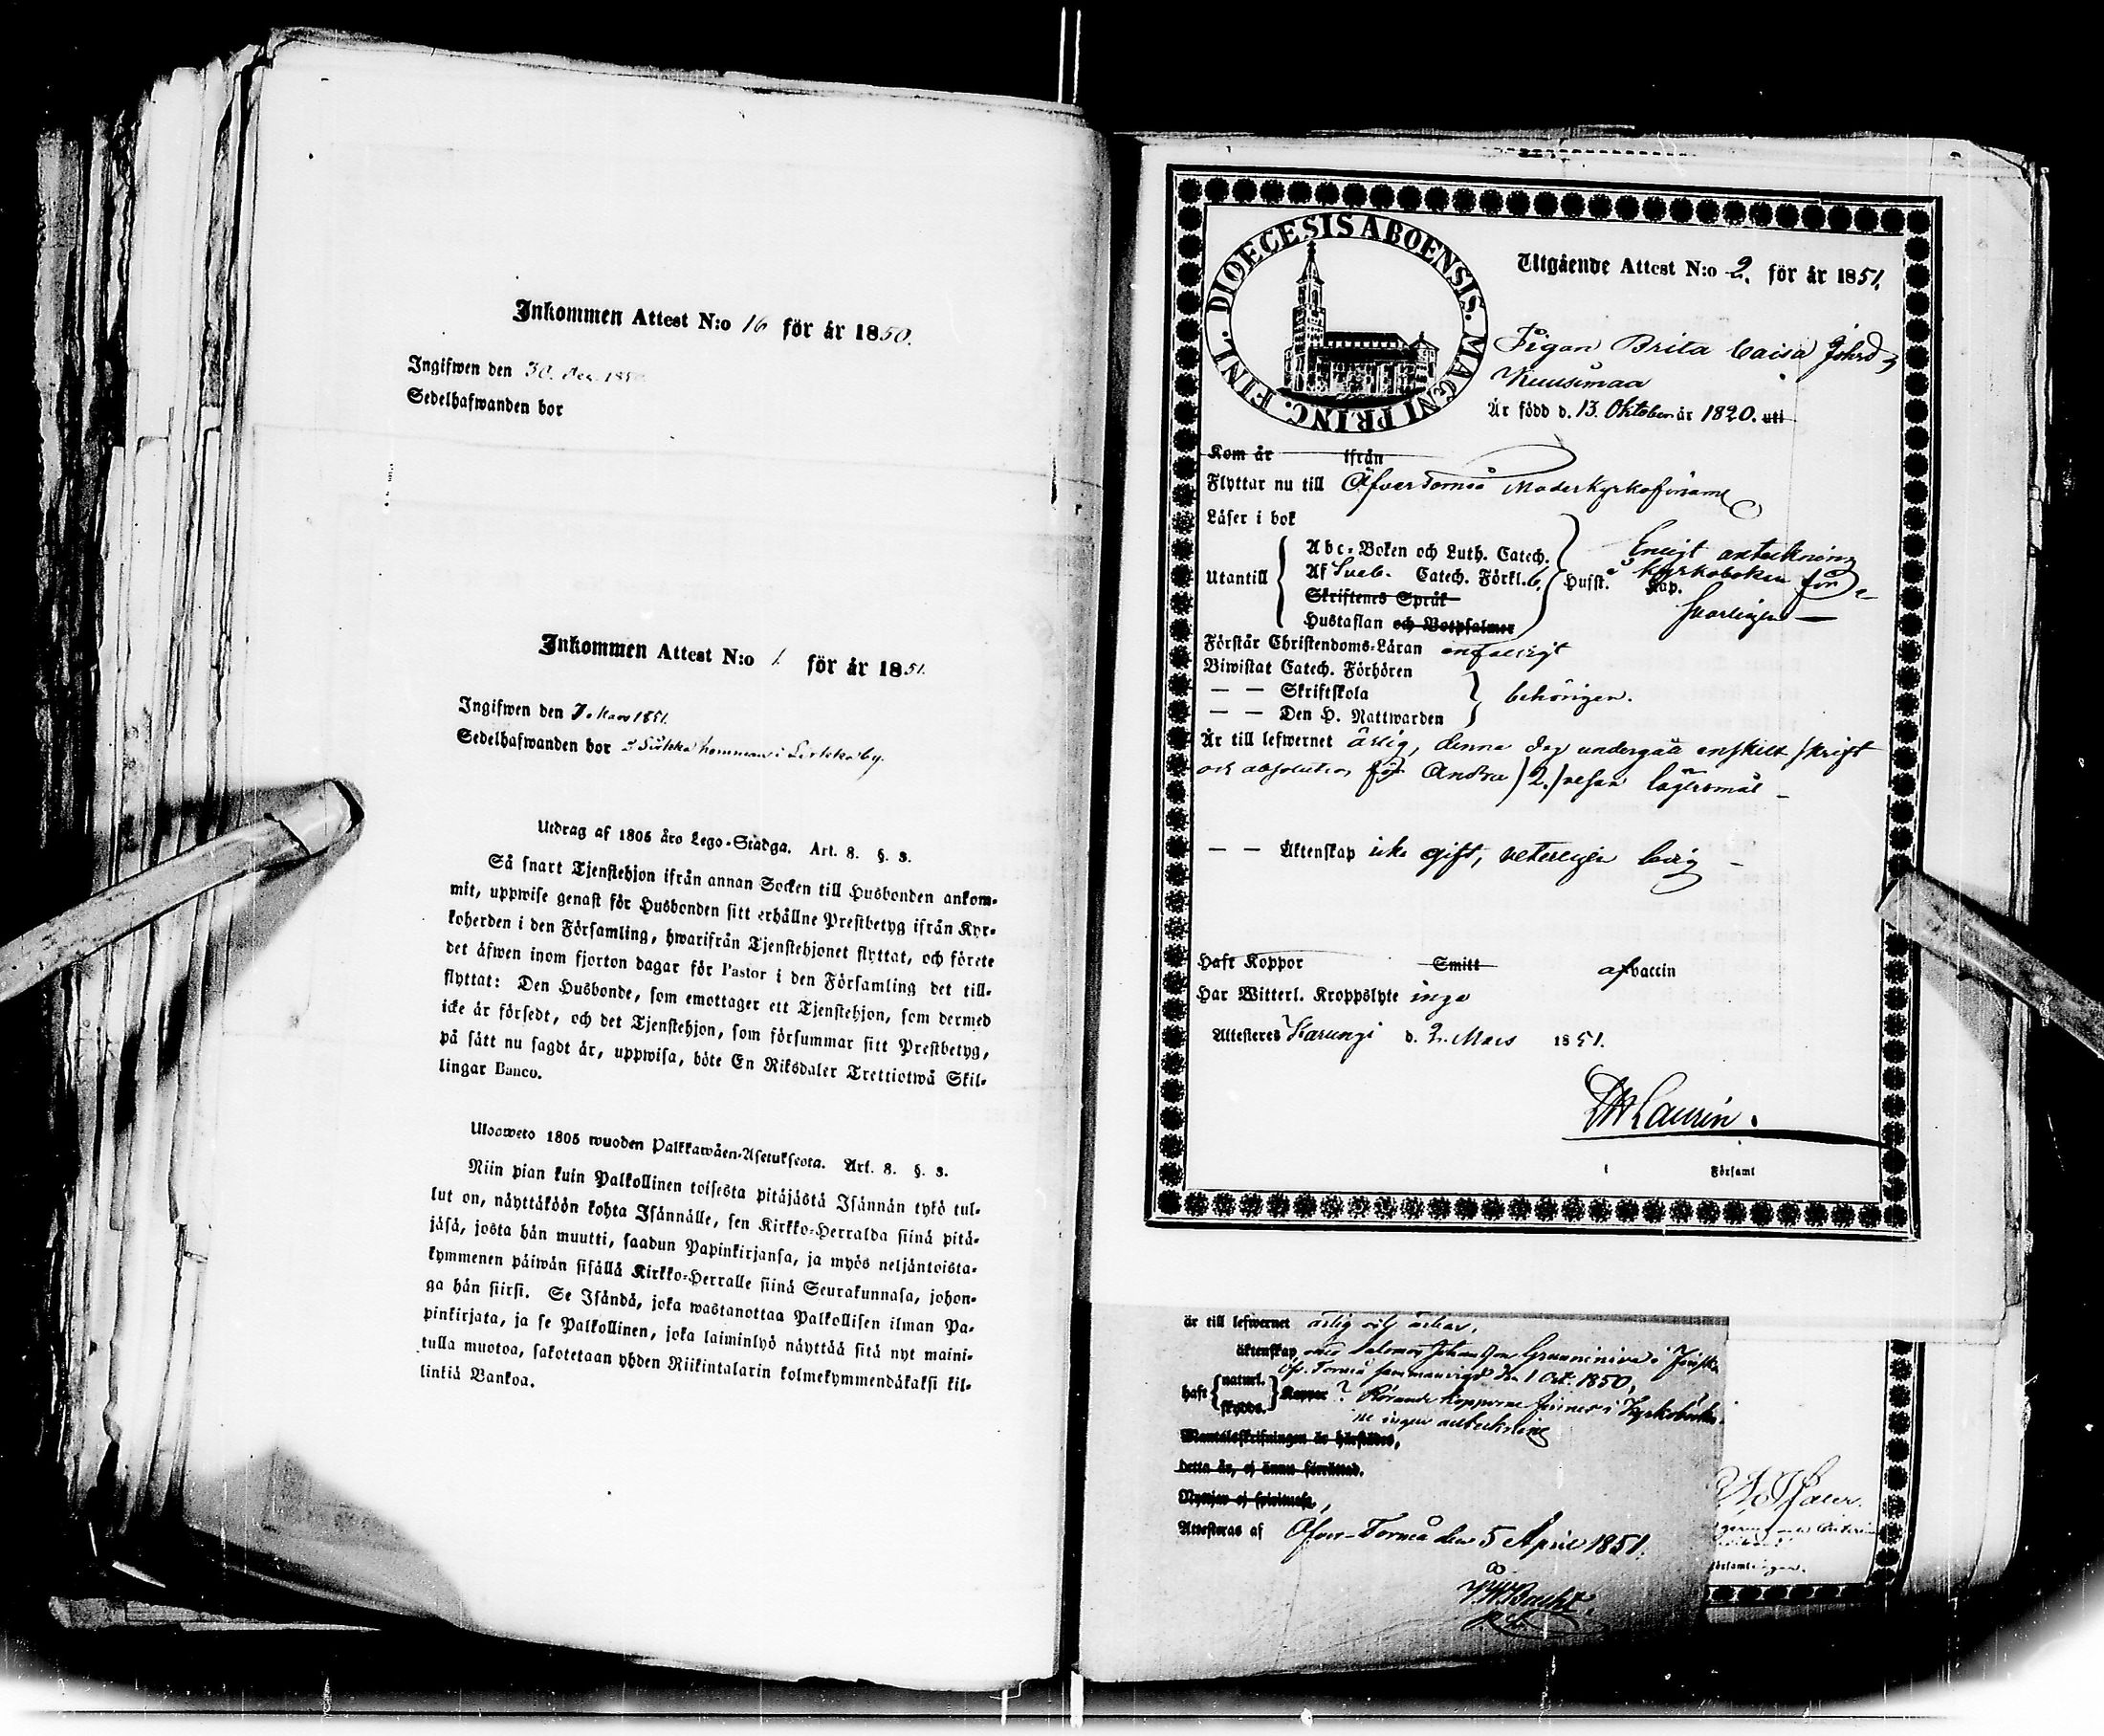 Inkommen Attest N:o 16 för år 1850.
Ingifwen den 30. Dec. 185
Sedelhafwanden bor
Inkommen Attest N:o 1. för år 1851.
Ingifwen den 7. Mars 1851.
Sedelhafwanden bor
Utdrag af 1805 åro Lego-Stadga. Art. 8. §. 3.
Så snart Tjenstehjon ifrån annan Socken till Husbonden ankom-
mit, uppwise genast för Husbonden sitt erhållne Prestbetyg ifrån Kyr-
koherden i den Församling, hwarifrån Tjenstehjonet flyttat, och förete
det äfwen inom fjorton dagar för Pastor i den Församling det till-
flyttat: Den Husbonde, som emottager ett Tjenstehjon, som dermed
icke är försedt, och det Tjenstehjon, som försummar sitt Prestbetyg,
på sätt nu sagdt är, uppwisa, böte En Riksdaler Trettiotwå Skil-
lingar Banco.
Ulooweto 1805 wuoden Palkkawäen-Asetukseota. Art. 8. §. 3.
Niin pian kuin Palkollinen toisesta pitäjästä Isännän tykö tul-
lut on, näyttäköön kohta Isännälle, sen Kirkko-Herralda siinä pitä-
jäsä, josta hän muutti, saadun Papinkirjansa, ja myös neljäntoista-
kymmenen päiwän sisällä Kirkko-Herralle siinä Seurakunnasa, johon-
ga hän siirsi. Se Isändä, joka wastanottaa Palkollisen ilman Pa-
pinkirjata, ja se Palkollinen, joka laiminlyö näyttää sitä nyt maini-
tulla muotoa, sakotetaan yhden Riikintalarin kolmekymmendäkaksi kil-
linkiä Bankoa.
DIOECESIS ABOENSIS. MAGNI PRINC. FINL.
Utgående Attest N:o 2. för år 1851.
Pigan Brita Caisa Johsd
Kuusimaa
Är född d. 13. Oktober år 1820. uti
Kom år ifrån
Flyttar nu till Öfver Torneå Moderkyrkoförsaml
Läser i bok
Utantill
Abc-Boken och Luth. Catech.
Af Sveb. Catech. Förkl.
Skriftenes Språk
Hustaflan och Botpsalmer
Husst. Kap.
Enligt anteckning
i Kyrkoboken för
svarligen
Förstår Christendoms-Läran enfaldigt
Biwistat Catech. Förhören
— — Skriftskola
— — Den H. Nattwarden
behörigen.
Är till lefwernet ärlig, denna dag undergått enskilt skrift
och absolution för Andra /2./ resan lägersmål
— — Äktenskap icke gift, veterligen ledig
Haft Koppor Smitt af vaccin
Har Witterl. Kroppslyte inga
Attesteres Karungi d. 2. Mars 1851.
Laurin.
i Församl
är till lefwernet ärlig och ärbar,
äktenskap med Salomon Johansson Grunniniva i
Öfv. Torneå sammanvigd den 1 Oct. 1850.
haft naturl. skydds. Koppor ? Rörande Kopporne finnes i Kyrkobok
ne ingen anteckning
Mantalsskrifningen är härstädes,
detta år, ej ännu förrättad.
Attesteras af Öfver-Torneå den 5 April 1851.
församlingen.